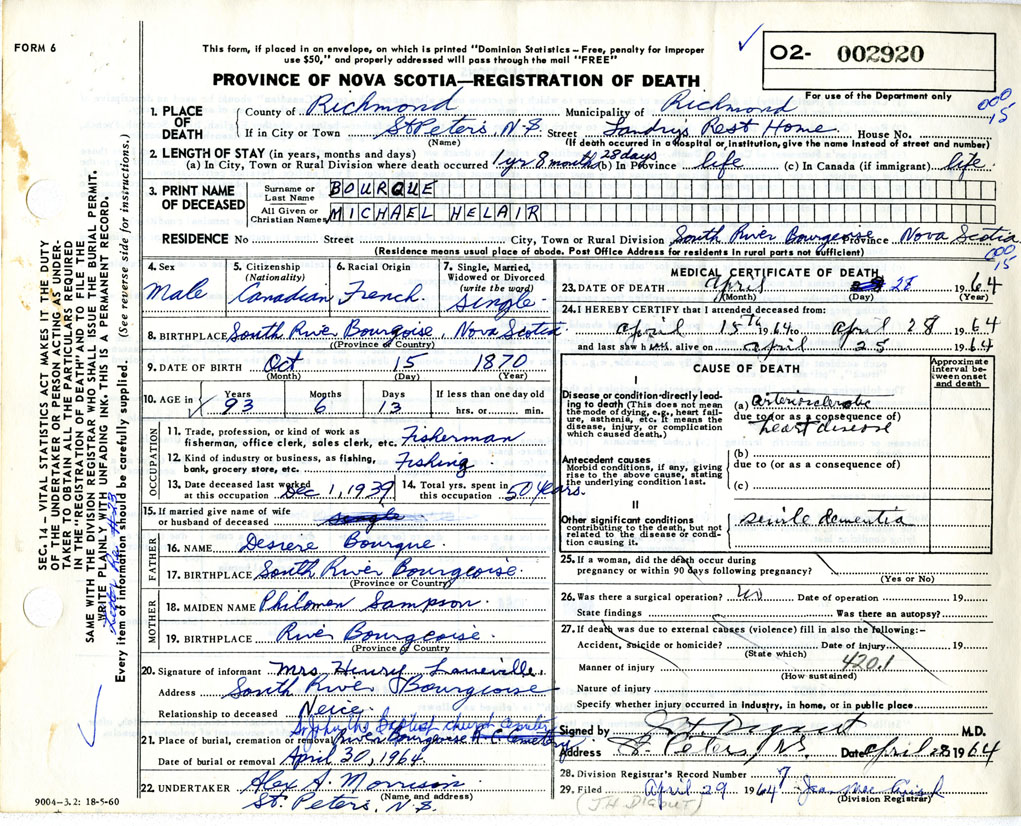 FORM 6
This form, if placed in an envelope, on which is printed "Dominion Statistics – Free, penalty for improper
use $50," and properly addressed will pass through the mail "FREE"
O2- 002920
For use of the Department only
PROVINCE OF NOVA SCOTIA—REGISTRATION OF DEATH
000
15
1. PLACE OF DEATH County of Richmond Municipality of Richmond
If in City or Town St Peters, N.S. Street Landry's Rest Home House No.
(Name) (If death occurred in a hospital or institution, give the name instead of street and number)
2. LENGTH OF STAY (in years, months and days)
(a) In City, Town or Rural Division where death occurred 1 yr 8 month 28 days (b) In Province life (c) In Canada (if immigrant) life
3. PRINT NAME OF DECEASED
Surname or Last Name BOURQUE
All Given or Christian Names MICHAEL HELAIR
RESIDENCE No Street City, Town or Rural Division South River Bourgeoise Province Nova Scotia
(Residence means usual place of abode. Post Office Address for residents in rural parts not sufficient)
000
15
4. Sex Male
5. Citizenship (Nationality) Canadian
6. Racial Origin French
7. Single, Married, Widowed or Divorced (write the word) Single
8. BIRTHPLACE South River Bourgoise, Nova Scotia
(Province or Country)
9. DATE OF BIRTH Oct 15 1870
(Month) (Day) (Year)
10. AGE in Years 93 Months 6 Days 13 If less than one day old hrs. or min.
OCCUPATION
11. Trade, profession, or kind of work as fisherman, office clerk, sales clerk, etc. Fisherman
12. Kind of industry or business, as fishing, bank, grocery store, etc. Fishing
13. Date deceased last worked at this occupation Dec 1, 1939
14. Total yrs. spent in this occupation 50 years.
15. If married give name of wife or husband of deceased single
FATHER
16. NAME Desire Bourque
17. BIRTHPLACE South River Bourgeoise
(Province or Country)
MOTHER
18. MAIDEN NAME Philomen Sampson
19. BIRTHPLACE River Bourgeoise
(Province of Country)
20. Signature of informant Mrs Henry
Address South River Bourgeoise
Relationship to deceased Neice
St John the Baptist church
21. Place of burial, cremation or removal River Bourgeoise R.C. Cemetery
Date of burial or removal April 30, 1964
22. UNDERTAKER Alex A. Morrison
(Name and address)
St. Peters, N.S.
9004–3.2: 18-5-60
MEDICAL CERTIFICATE OF DEATH
23. DATE OF DEATH April 28 1964
(Month) (Day) (Year)
24. I HEREBY CERTIFY that I attended deceased from:
April 18th 1964 to April 28 1964
and last saw him alive on April 25 1964
CAUSE OF DEATH
Approximate interval between onset and death
I
Disease or condition directly leading to death (This does not mean the mode of dying, e.g., heart failure, asthenia, etc. It means the disease, injury, or complication which caused death.)
(a) arteriosclerotic
due to (or as a consequence of)
heart disease
Antecedent causes
Morbid conditions, if any, giving rise to the above cause, stating the underlying condition last.
(b)
due to (or as a consequence of)
(c)
II
Other significant conditions contributing to the death, but not related to the disease or condition causing it.
senile dementia
25. If a woman, did the death occur during
pregnancy or within 90 days following pregnancy?
(Yes or No)
26. Was there a surgical operation? no Date of operation 19
State findings Was there an autopsy?
27. If death was due to external causes (violence) fill in also the following:–
Accident, suicide or homicide? Date of injury 19
(State which)
Manner of injury 420.1
(How sustained)
Nature of injury
Specify whether injury occurred in Industry, in home, or in public place
Signed by J H Digout M.D.
Address St. Peters, NS Date April 28 1964
28. Division Registrar's Record Number 7
29. Filed April 29 1964
(Division Registrar)
(J H DIGOUT)
SEC. 14 – VITAL STATISTICS ACT MAKES IT THE DUTY
OF THE UNDERTAKER OR PERSON ACTING AS UNDER-
TAKER TO OBTAIN ALL THE PARTICULARS REQUIRED
IN THE "REGISTRATION OF DEATH" AND TO FILE THE
SAME WITH THE DIVISION REGISTRAR WHO SHALL ISSUE THE BURIAL PERMIT.
WRITE PLAINLY WITH UNFADING INK. THIS IS A PERMANENT RECORD.
Every item of information should be carefully supplied. (See reverse side for instructions.)